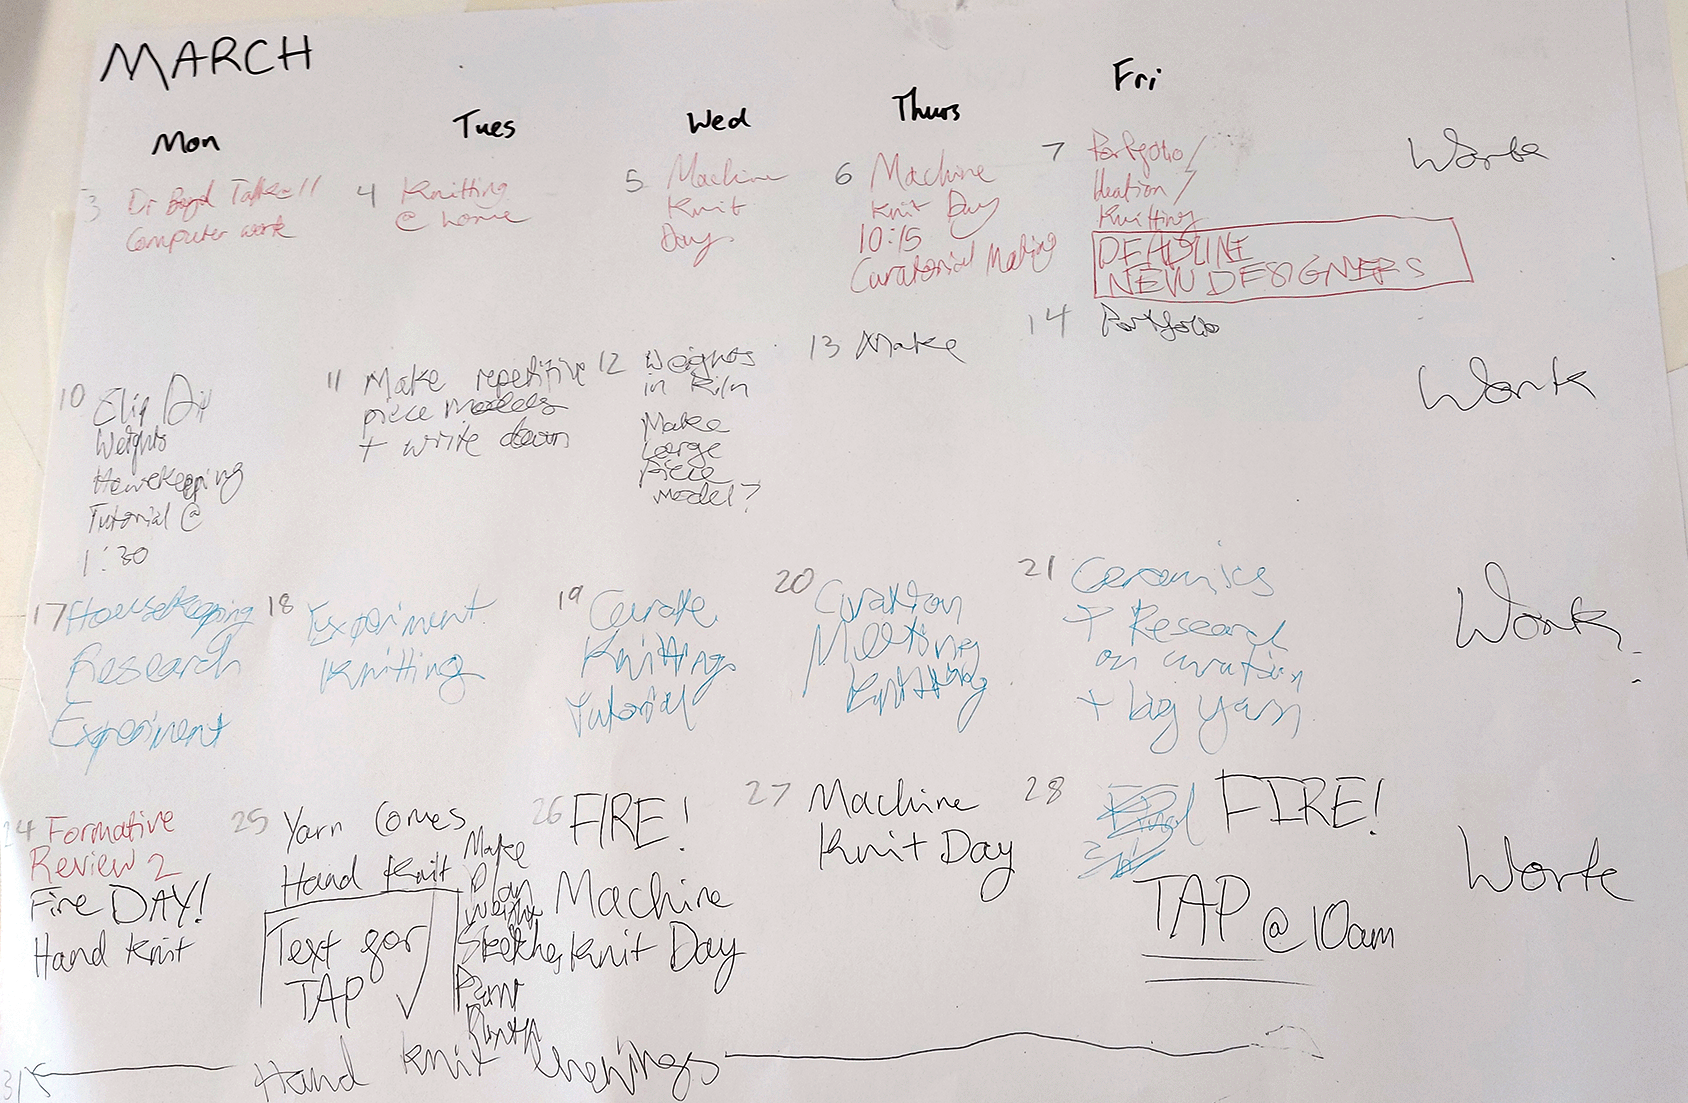 MARCH
Mon
Tues
Wed
Thurs
Fri
3
Dr Boyd Talk @ 11
Computer work
4
Knitting
@ home
5
Machine
Knit
Day
6
Machine
Knit Day
10:15
Curatorial Making
7
Portfolio /
Ideation /
Knitting
DEADLINE
NEW DESIGNERS
Work
10
Slip
Weights
Housekeeping
Tutorial @
1:30
11
Make repetitive
piece models
+ write down
12
Weights
in Kiln
Make
Large
Piece
model?
13
Make
14
Portfolio
Work
17
Housekeeping
Research
Experiment
18
Experiment
Knitting
19
Curate
Knitting
Tutorial
20
Curation
Meeting
Knitting
21
Ceramics
+ Research
on curation
+ big yarn
Work
24
Formative
Review 2
Fire DAY!
Hand Knit
25
Yarn Comes
Hand Knit
Text for
TAP ✓
Make
Plan
Weights
Sketches
26
FIRE!
Machine
Knit Day
27
Machine
Knit Day
28
FIRE!
TAP @ 10am
Work
31
Hand Knit Evenings